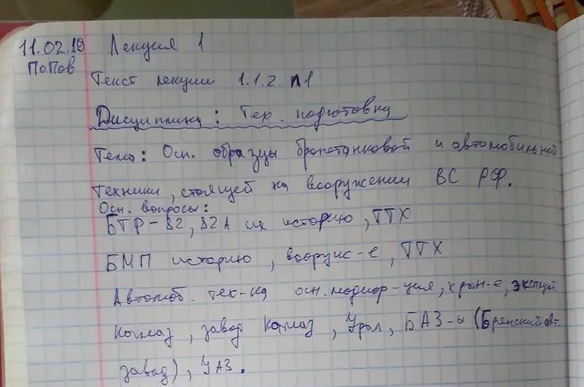 11.02.19 Лекция 1
Попов
Текст лекции 1.1.2. п1
Дисциплина: Тех. подготовка
Тема: Осн. образцы бронетанковой и автомобильной
техники, стоящей на вооружении ВС РФ.
Осн. вопросы:
БТР-82, 82А их историю, ТТХ
БМП историю, вооруж-е, ТТХ
Автомоб. тех-ка осн. модиф-ция, хран-е, эксплуат.
Камаз, завод Камаз, Урал, БАЗ-ы (Брянский авт.
завод), УАЗ.